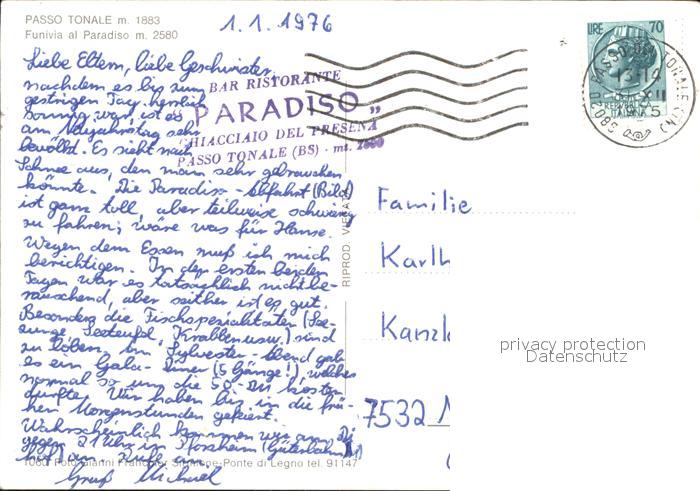 PASSO TONALE m. 1883
Funivia al Paradiso m. 2580
1.1.1976
LIRE 70
Liebe Eltern, liebe Geschwister,
nachdem es bis zum
gestrigen Tag herrlich
sonnig war, ist es
am Neujahrstag sehr
bewölkt. Es sieht nach
Schnee aus, den man sehr gebrauchen
könnte. Die Paradiso-Abfahrt (Bild)
ist ganz toll, aber teilweise schwierig
zu fahren; wäre was für Hanse.
Wegen dem Essen muß ich mich
berichtigen. In den ersten beiden
Tagen war es tatsächlich nicht be-
rauschend, aber seither ist es gut.
Besonders die Fischspezialitäten (See-
zunge, Seeteufel, Krabben usw.) sind
zu loben. Am Sylvester-Abend gab
es ein Gala-Diner (5 Gänge!) welches
normal so um die 50.- DM kosten
dürfte. Wir haben bis in die frü-
hen Morgenstunden gefeiert.
Wahrscheinlich kommen wir am
gegen 21 Uhr in Pforzheim (Güterbahn-
hof) an. Rufe an
Gruß Michael
BAR RISTORANTE
"PARADISO"
GHIACCIAIO DEL PRESENA
PASSO TONALE (BS) - mt.
REPUBBLICA
ITALIANA
PASSO DEL TONALE (TN)
13-14
31 XII
1975
RIPROD. VIETATA
Familie
Karlh
Kanzl
7532
privacy protection
Datenschutz
1060 Foto Gianni Ponte di Legno tel. 91147